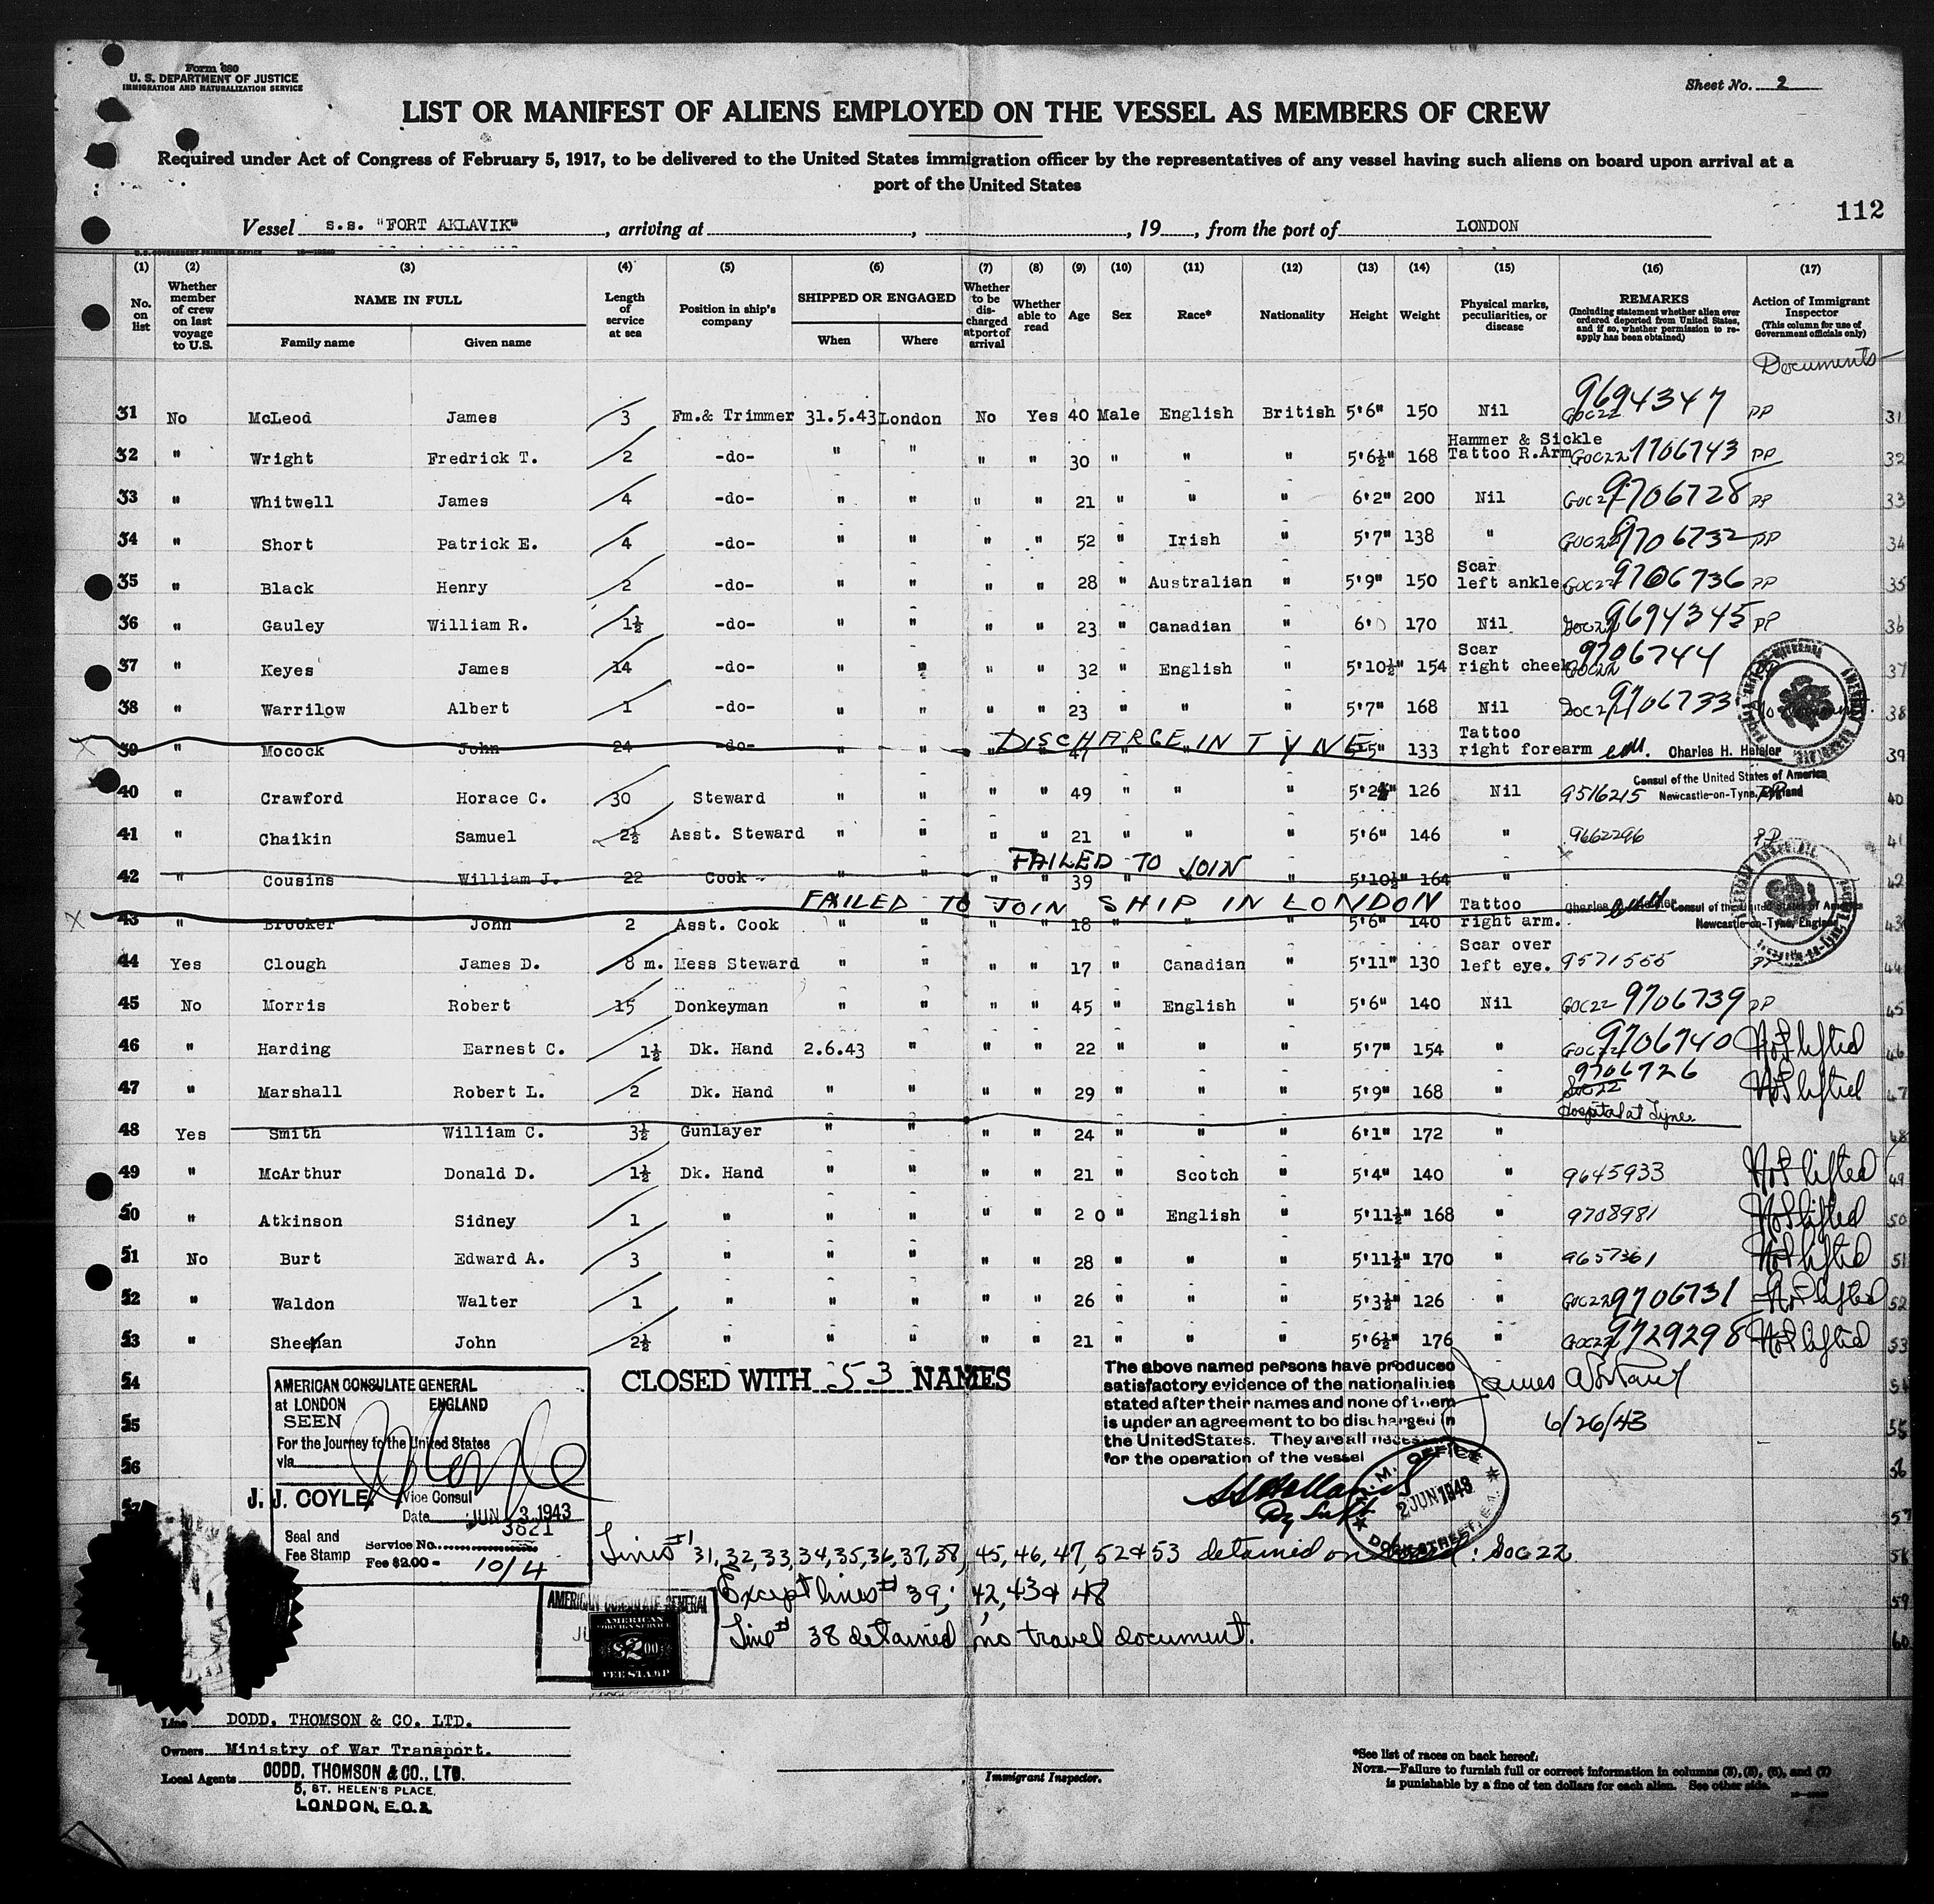 Form 680
U. S. DEPARTMENT OF JUSTICE
IMMIGRATION AND NATURALIZATION SERVICE
Sheet No. 2
LIST OR MANIFEST OF ALIENS EMPLOYED ON THE VESSEL AS MEMBERS OF CREW
Required under Act of Congress of February 5, 1917, to be delivered to the United States immigration officer by the representatives of any vessel having such aliens on board upon arrival at a
port of the United States
112
Vessel s.s. "FORT AKLAVIK", arriving at , , 19 , from the port of LONDON
(1) (2) (3) (4) (5) (6) (7) (8) (9) (10) (11) (12) (13) (14) (15) (16) (17)
No. on list
Whether member of crew on last voyage to U.S.
NAME IN FULL
Family name
Given name
Length of service at sea
Position in ship's company
SHIPPED OR ENGAGED
When
Where
Whether to be discharged at port of arrival
Whether able to read
Age
Sex
Race*
Nationality
Height
Weight
Physical marks, peculiarities, or disease
REMARKS
(Including statement whether alien ever ordered deported from United States, and if so, whether permission to reapply has been obtained)
Action of Immigrant Inspector
(This column for use of Government officials only)
Documents
31 No McLeod James 3 Fm.& Trimmer 31.5.43 London No Yes 40 Male English British 5'6" 150 Nil 9694347 PP 31
32 " Wright Fredrick T. 2 -do- " " " " 30 " " " 5'6½" 168 Hammer & Sickle Tattoo R.Arm 9706743 PP 32
33 " Whitwell James 4 -do- " " " " 21 " " " 6'2" 200 Nil 9706728 PP 33
34 " Short Patrick E. 4 -do- " " " " 52 " Irish " 5'7" 138 " 9706732 PP 34
35 " Black Henry 2 -do- " " " " 28 " Australian " 5'9" 150 Scar left ankle 9706736 PP 35
36 " Gauley William R. 1½ -do- " " " " 23 " Canadian " 6'0 170 Nil 9694345 PP 36
37 " Keyes James 14 -do- " " " " 32 " English " 5'10½" 154 Scar right cheek 9706744 37
38 " Warrilow Albert 1 -do- " " " " 23 " " " 5'7" 168 Nil 9706733 38
X 39 " Mocock John 24 -do- " " " DISCHARGE IN TYNE 47 133 Tattoo right forearm Charles H. Heisler 39
Consul of the United States of America
Newcastle-on-Tyne, England
40 " Crawford Horace C. 30 Steward " " " " 49 " " " 126 Nil 9516215 PP 40
41 " Chaikin Samuel 2½ Asst. Steward " " " " 21 " " " 5'6" 146 " 9662296 PP 41
FAILED TO JOIN
42 " Cousins William J. 22 Cook " " " " 39 " " " 5'10½" 164 " 42
FAILED TO JOIN SHIP IN LONDON
X 43 " Brooker John 2 Asst. Cook " " " " 18 " " " 5'6" 140 Tattoo right arm. Consul of the United States of America Newcastle-on-Tyne, England 43
44 Yes Clough James D. 8 m. Mess Steward " " " " 17 " Canadian " 5'11" 130 Scar over left eye. 9571555 PP 44
45 No Morris Robert 15 Donkeyman " " " " 45 " English " 5'6" 140 Nil 9706739 PP 45
46 " Harding Earnest C. 1½ Dk. Hand 2.6.43 " " " 22 " " " 5'7" 154 " 9706740 Not lifted 46
47 " Marshall Robert L. 2 Dk. Hand " " " " 29 " " " 5'9" 168 " 9706726 Not lifted 47
Hospital at Tyne.
48 Yes Smith William C. 3½ Gunlayer " " " " 24 " " " 6'1" 172 " 48
49 " McArthur Donald D. 1½ Dk. Hand " " " " 21 " Scotch " 5'4" 140 " 9645933 Not lifted 49
50 " Atkinson Sidney 1 " " " " " 20 " English " 5'11½" 168 " 9708981 Not lifted 50
51 No Burt Edward A. 3 " " " " " 28 " " " 5'11½" 170 " 9657361 Not lifted 51
52 " Waldon Walter 1 " " " " " 26 " " " 5'3½" 126 " 9706731 Not lifted 52
53 " Sheehan John 2½ " " " " " 21 " " " 5'6½" 176 " 9729298 Not lifted 53
54
55
56
57
58
59
60
CLOSED WITH 53 NAMES
The above named persons have produced
satisfactory evidence of the nationalities
stated after their names and none of them
is under an agreement to be discharged in
the United States. They are all necessary
for the operation of the vessel
James
6/26/43
M. M. OFFICE
2 JUN 1943
DOCK STREET, E.1.
AMERICAN CONSULATE GENERAL
at LONDON ENGLAND
SEEN
For the Journey to the United States
via
J. J. COYLE. Vice Consul
Date JUN 3 1943
3821
Seal and Fee Stamp
Service No.
Fee $2.00 = 10/4
Lines # 31, 32, 33, 34, 35, 36, 37, 38, 45, 46, 47, 52 & 53 detained on
Except lines # 39, 42, 43 & 48
Line # 38 detained no travel document.
AMERICAN CONSULATE GENERAL
AMERICAN
FOREIGN SERVICE
$2.00
FEE STAMP
Line DODD, THOMSON & CO. LTD.
Owners Ministry of War Transport.
Local Agents DODD, THOMSON & CO., LTD.
5, ST. HELEN'S PLACE,
LONDON, E.C.3.
Immigrant Inspector.
*See list of races on back hereof.
NOTE.—Failure to furnish full or correct information in columns (2), (5), (6), and (7)
is punishable by a fine of ten dollars for each alien. See other side.